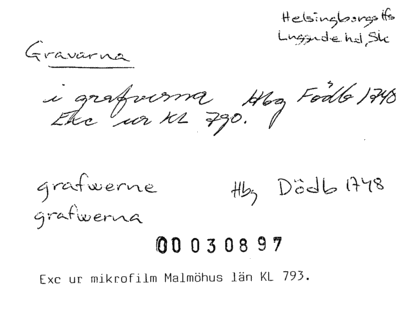 Helsingborgs lfs
Luggude hd, Sk
Gravarna
i grafverna Hbg Födb 1740
Exc ur KL 790.
grafwerne Hbg Dödb 1748
grafwerna
00030897
Exc ur mikrofilm Malmöhus län KL 793.